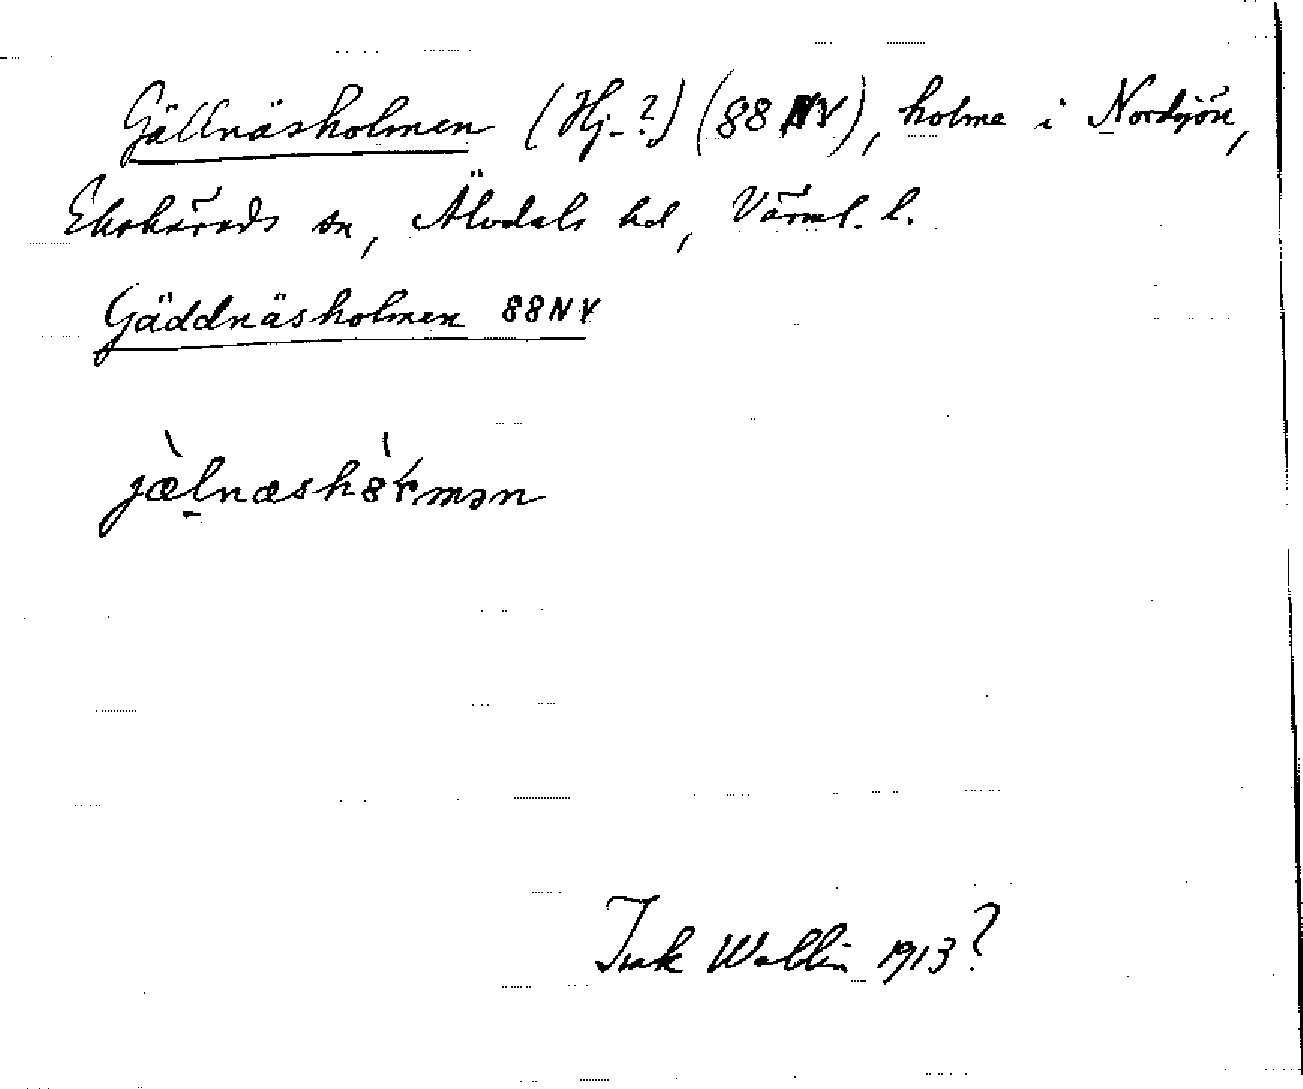 Gällnäsholmen (Hj-?) (88 NV), holme i Nordsjön,
Ekshärads sn, Älvdals hd, Värml. l.
Gäddnäsholmen 88NV
Isak Wallin 1913?